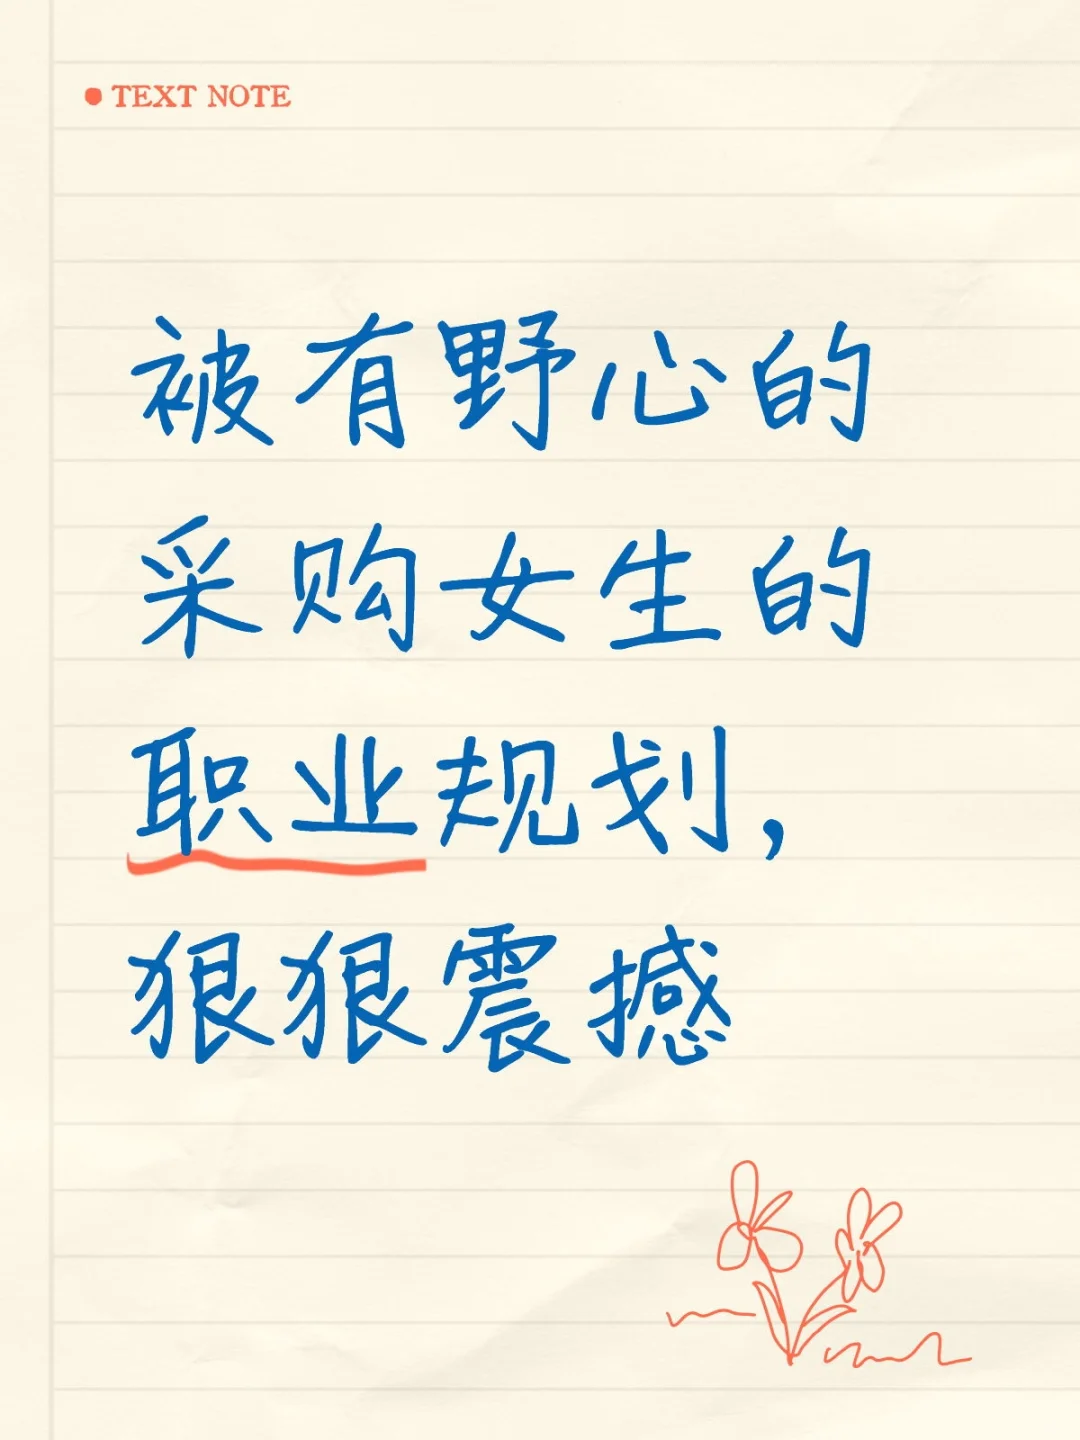 TEXT NOTE
被有野心的
采购女生的
职业规划，
狠狠震撼